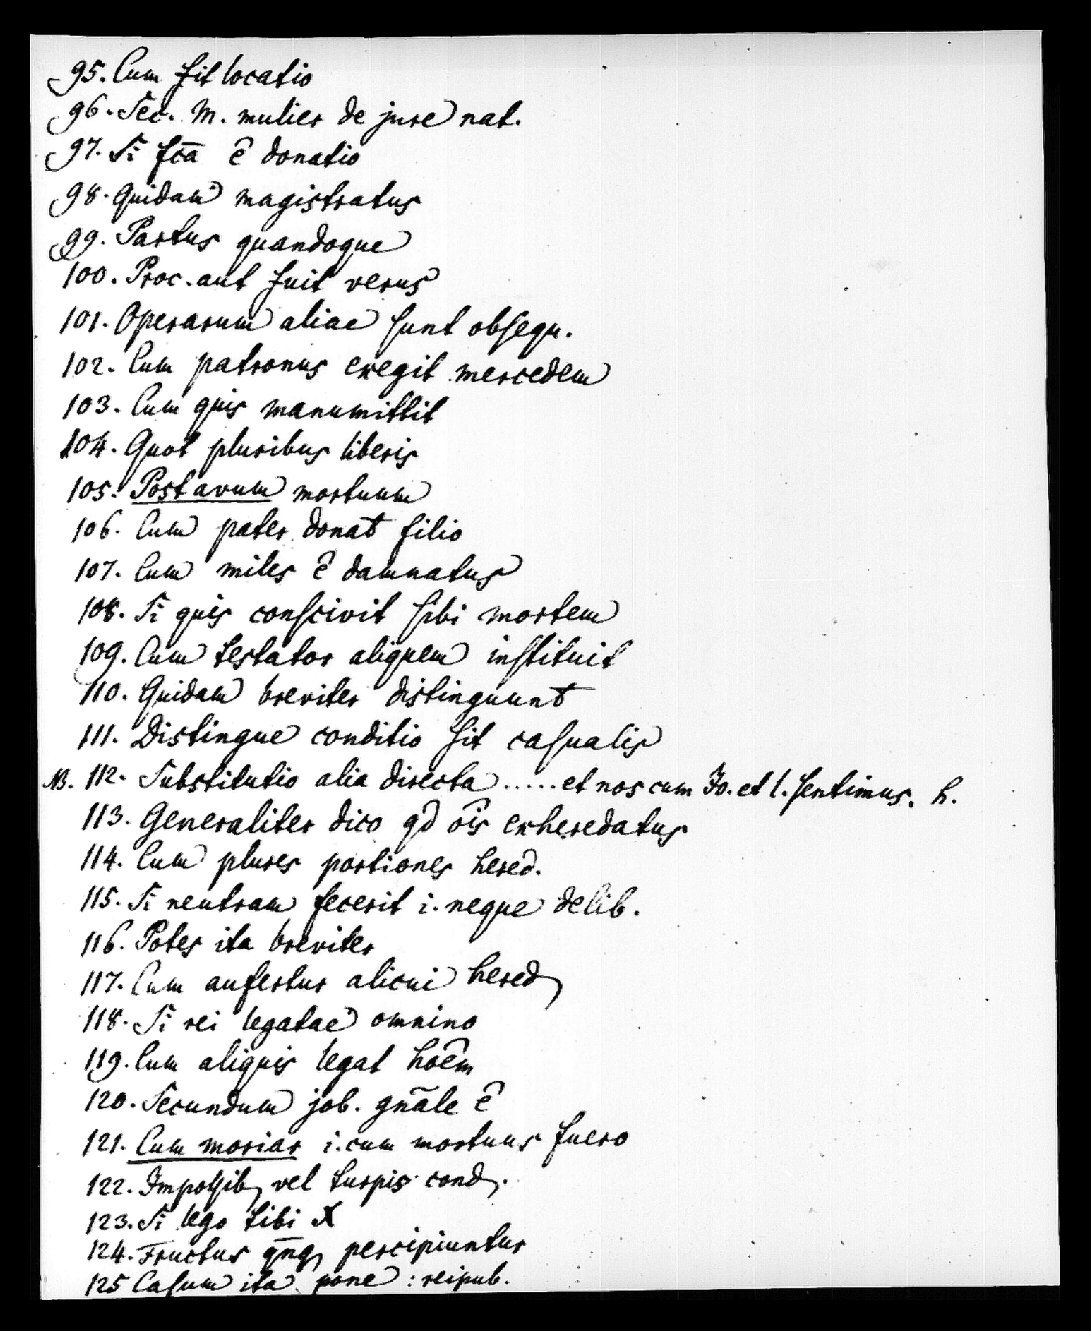 95. Cum fit locatio
96. Sec. M. mulier de jure nat.
97. Si fc̄a ē donatio
98. Quidam magistratus
99. Partus quandoque
100. Proc. aut fuit verus
101. Operarum aliae sunt obsequ.
102. Cum patronus exegit mercedem
103. Cum quis manumittit
104. Quot pluribus liberis
105. Post avum mortuum
106. Cum pater donat filio
107. Cum miles ē damnatus
108. Si quis conscivit sibi mortem
109. Cum testator aliquem instituit
110. Quidam breviter distinguunt
111. Distingue conditio sit casualis
NB. 112. Substitutio alia directa ..... et nos cum Jo. et l. sentimus. h.
113. Generaliter dico qd ōis exheredatus
114. Cum plures portiones hered.
115. Si neutram fecerit i. neque delib.
116. Potes ita breviter
117. Cum aufertur alicui hered
118. Si rei legatae omnino
119. Cum aliquis legat hoēm
120. Secundum job. gn̄ale ē
121. Cum moriar i. cum mortuus fuero
122. Impossib vel turpis cond.
123. Si lego tibi X
124. Fructus qn̄q percipiuntur
125 Casum ita pone : reipub.